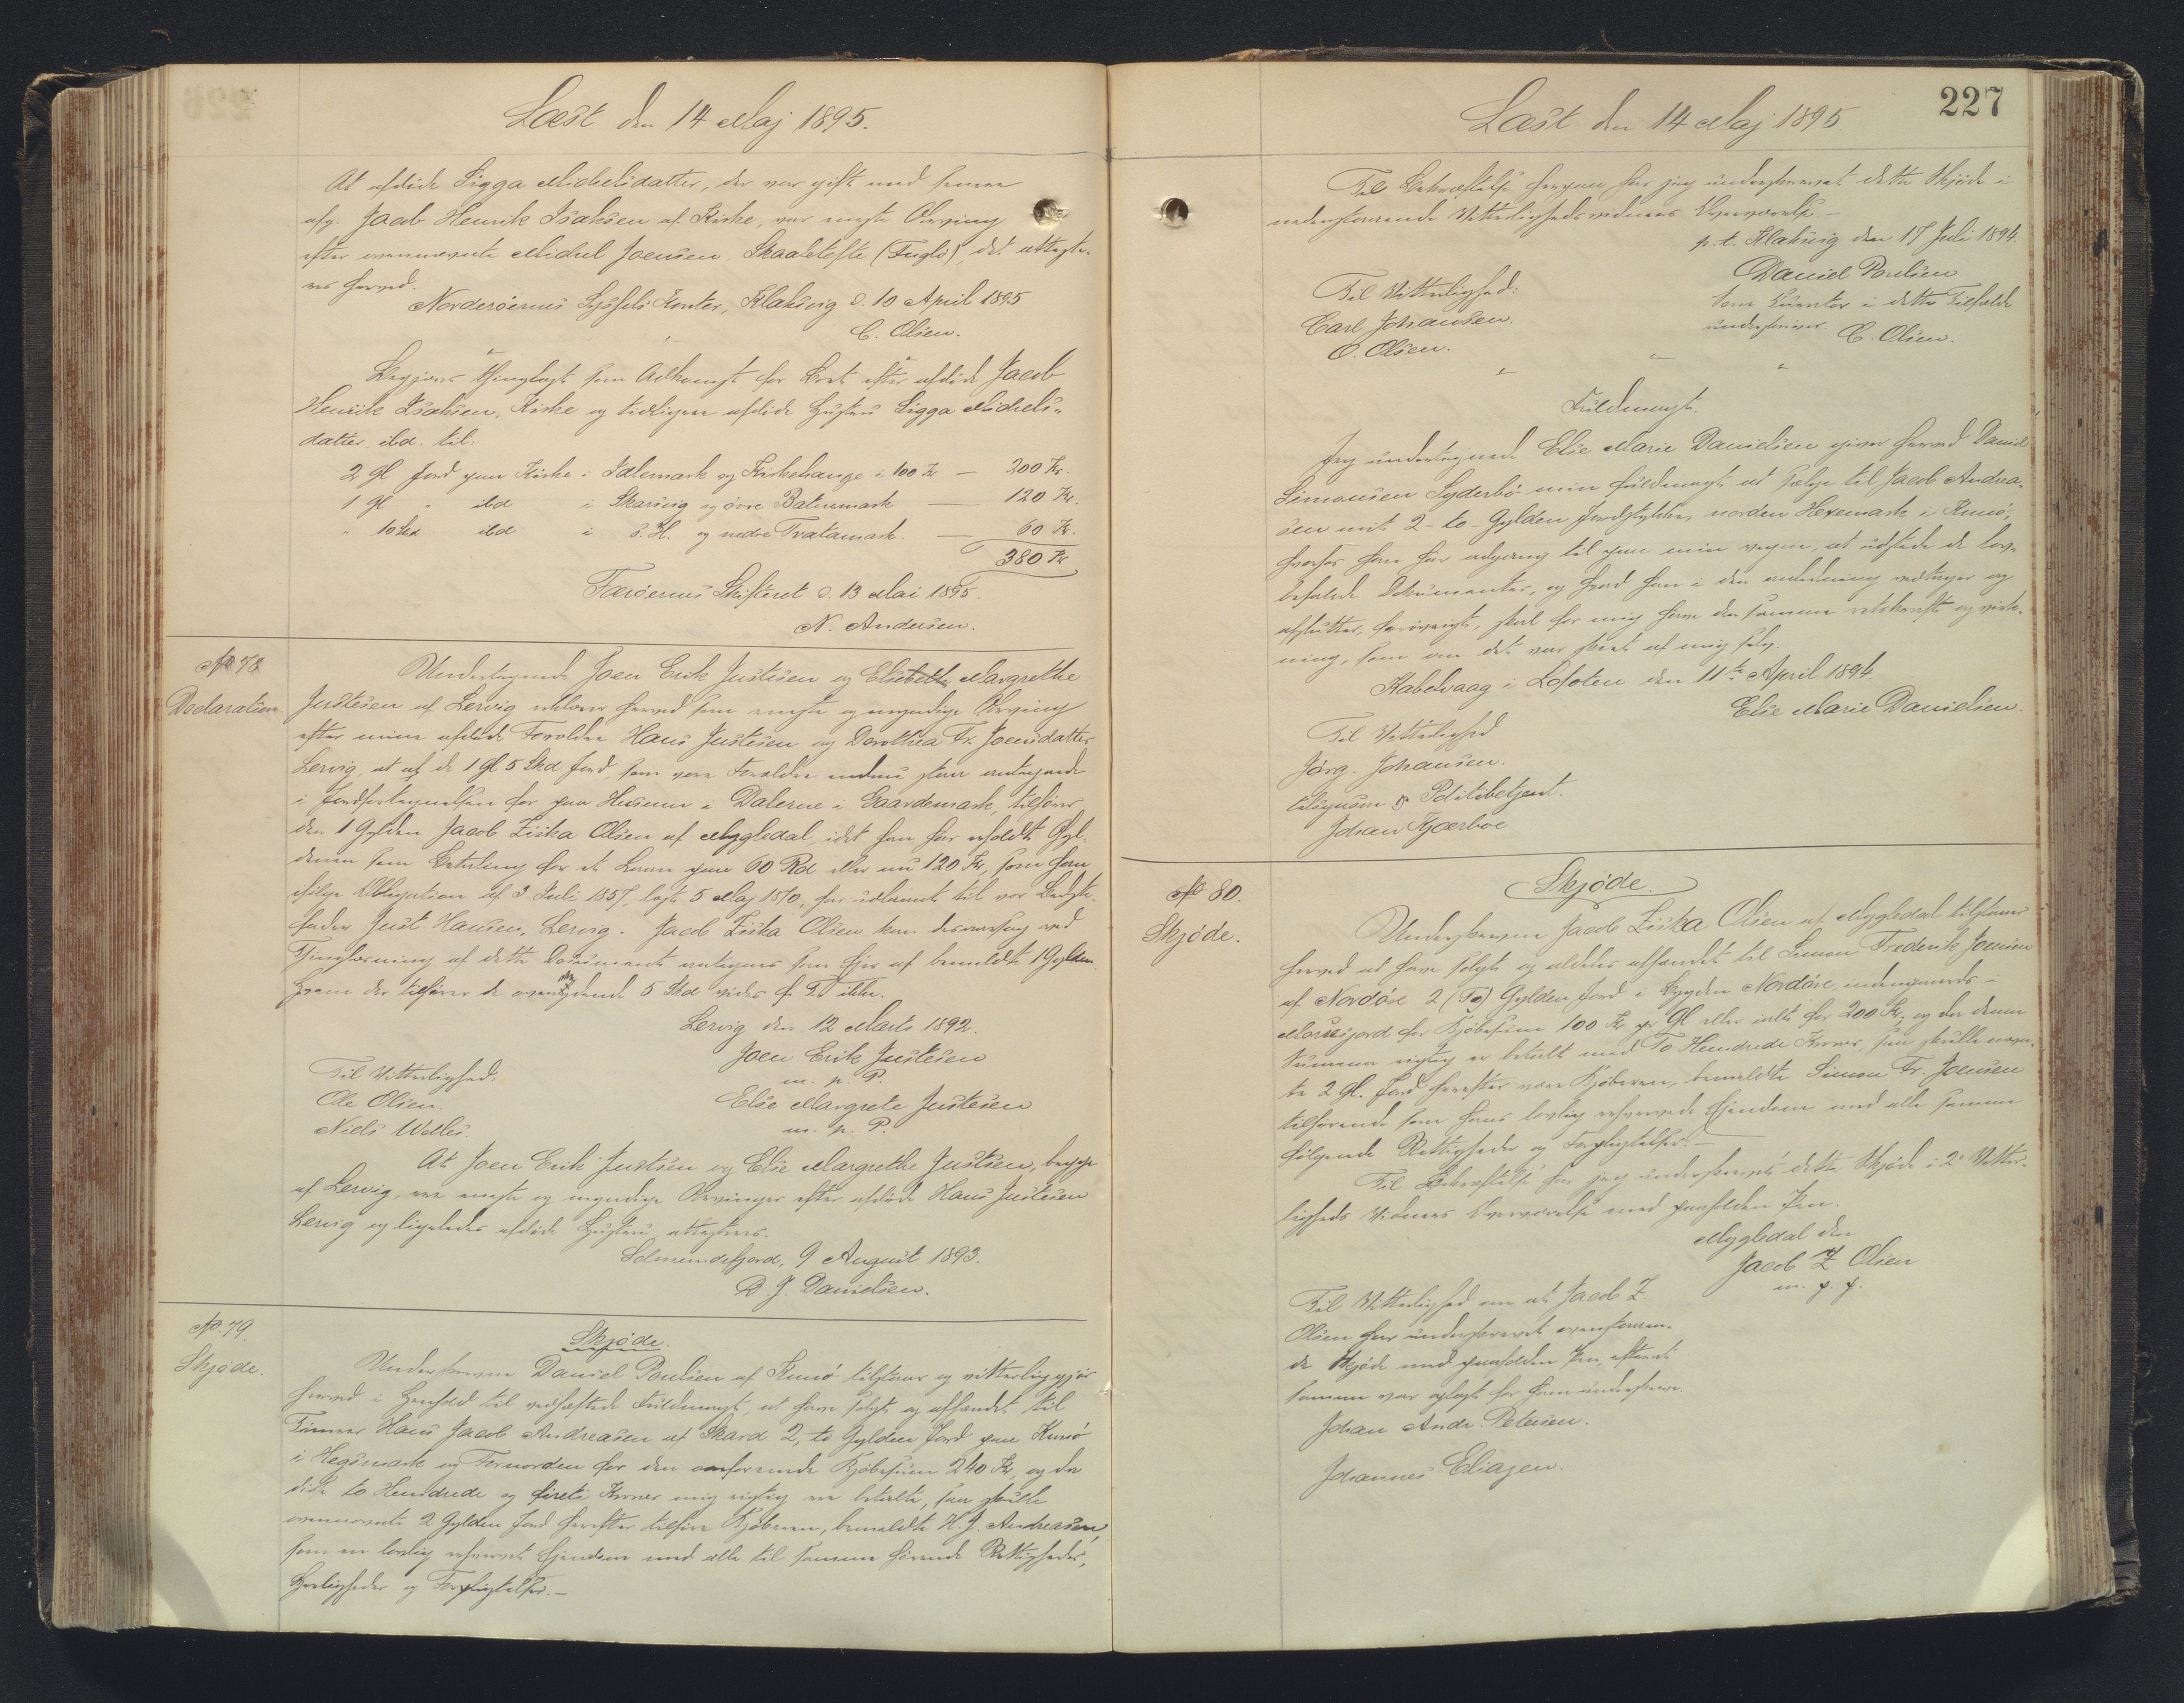 Læst den 14 Maj 1895.
At afdøde Sigga Michelsdatter, der var gift med senere
afg. Jacob Henrik Isaksen af Kirke, var eneste Arving
efter ovennævnte Michel Joensen, Skaaletofte (Fuglø), det atteste-
res herved.
Norderøernes Syssels Kontor, Klaksvig d. 10 April 1895
C. Olsen.
Begjæres thinglæst som Adkomst for Boet efter afdøde Jacob
Henrik Isaksen, Kirke og tidligere afdøde Hustru Sigga Michels-
datter ibd. til:
2 Gl Jord paa Kirke i Dalemark og Kirkehauge i 100 Kr — 200 Kr.
1 Gl " ibd i Skarsvig og øvre Batnmark — 120 Kr.
" 10 Skd ibd i S. H. og nedre Tvatamark. — 60 Kr.
380 Kr
Færøernes Skifteret d. 13 Mai 1895.
N. Andersen.
No 78
Declaration.
Undertegnede Joen Erik Justesen og Elisbeth Margrethe
Justesen af Lervig erklærer herved som eneste og myndige Arving
efter mine afdøde Forældre Hans Justesen og Dorothea Fr. Joensdatter
Lervig, at af de 1 Gl 5 Skd Jord, som vore Forældre endnu staar antegnede
i Jordfortegnelsen for paa Husum i Dalerne i Gaardemark, tilhører
den 1 Gylden Jacob Ziska Olsen af Mygledal, idet han har erholdt Gyl-
denen som Betaling for et Laan paa 60 Rd eller nu 120 Kr, som han
ifølge Obligation af 3 Juli 1857, læst 5 Maj 1870, har udlaant til vor Bedste-
fader Just Hansen, Lervig. Jacob Ziska Olsen kan desaarsag ved
Thinglæsning af dette Document antegnes som Ejer af bemeldte 1 Gylden.
Hvem der tilhører de ovenstydende 5 Skd vides f. T. ikke.
Lervig, den 12 Marts 1892.
Joen Erik Justesen
m. p. P.
Til Vitterlighed:
Ole Olsen.
Else Margrete Justesen
Niels Wolles.
m. p. P.
At Joen Erik Justsen og Else Margrethe Justsen, begge
af Lervig, ere eneste og myndige Arvinger efter afdøde Hans Justesen
Lervig og ligeledes afdøde Hustru attesteres.
Selmundefjord, 9 August 1893.
D. J. Danielsen.
No. 79.
Skjøde.
Skjøde.
Underskrevne Daniel Poulsen af Kunø tilstaar og vitterliggjør
herved i Henhold til vedhæftede Fuldmagt, at have solgt og afhændet til
Tømrer Hans Jacob Andreasen af Skard 2, to Gylden Jord paa Kunø
i Hegsmark og Fornorden for den omforenede Kjøbesum 240 Kr, og da
disse to Hundrede og fireti Kroner mig rigtig ere betalte, saa skulle
ovennævnte 2 Gylden Jord herefter tilhøre Kjøberen, bemeldte H. J. Andreasen,
som en lovlig erhvervet Ejendom med alle til samme hørende Rettigheder,
Herligheder og Forpligtelser.—
227
Læst den 14 Maj 1895
Til Bekræftelse herpaa har jeg underskrevet dette Skjøde i
nedenstaaende Vitterlighedsvidners Overværelse.—
p. t. Klaksvig den 17 Juli 1894.
Daniel Poulsen
Til Vitterlighed:
Som Curator i dette Tilfælde
Carl Johansen.
underskriver C. Olsen.
O. Olsen.
Fuldmagt.
Jeg undertegnede Else Marie Danielsen giver herved Daniel
Simonsen Syderbø min fuldmagt at sælge til Jacob Andrea-
sen mit 2 - to - Gylden Jordstykke, norden Hexemark i Kunø,
hvorfor han har adgang til paa min vegne, at udstede de lov-
befalede Dokumenter, og hvad han i den anledning vedtager og
afslutter, forøvrigt, skal for mig have den samme retskraft og virk-
ning, som om det var skeet af mig selv.
Kabelvaag i Lofoten den 11te April 1894.
Else Marie Danielsen.
Til Vitterlighed
Jørg. Johansen.
tilsynsm & Politibetjent.
Johan Kjærboe
No 80.
Skjøde.
Skjøde.
Underskrevne Jacob Ziska Olsen af Mygledal tilstaar
herved at have solgt og aldeles afhændet til Simon Frederik Joensen
af Nordøre 2 (To) Gylden Jord i Bygden Nordøre, indengaards -
Mariesjord for Kjøbesum 100 Kr pr Gl eller ialt for 200 Kr; og da denne
Summa rigtig er betalt med To Hundrede Kroner, saa skulle nævn-
te 2 Gl. Jord herefter være Kjøberen, bemeldte Simon Fr. Joensen
tilhørende som hans lovlig erhvervede Ejendom med alle samme
følgende Rettigheder og Forpligtelser.—
Til Bekræftelse har jeg underskrevet dette Skjøde i 2 Vitter-
ligheds Vidners Overværelse med paaholden Pen.
Mygledal den
Jacob Z Olsen
m. p. p.
Til Vitterlighed om at Jacob Z.
Olsen har underskrevet ovenstaaen-
de Skjøde med paaholden Pen, efterat
samme var oplæst for ham underskriver.
Johan Andr. Petersen.
Johannes Eliazen.